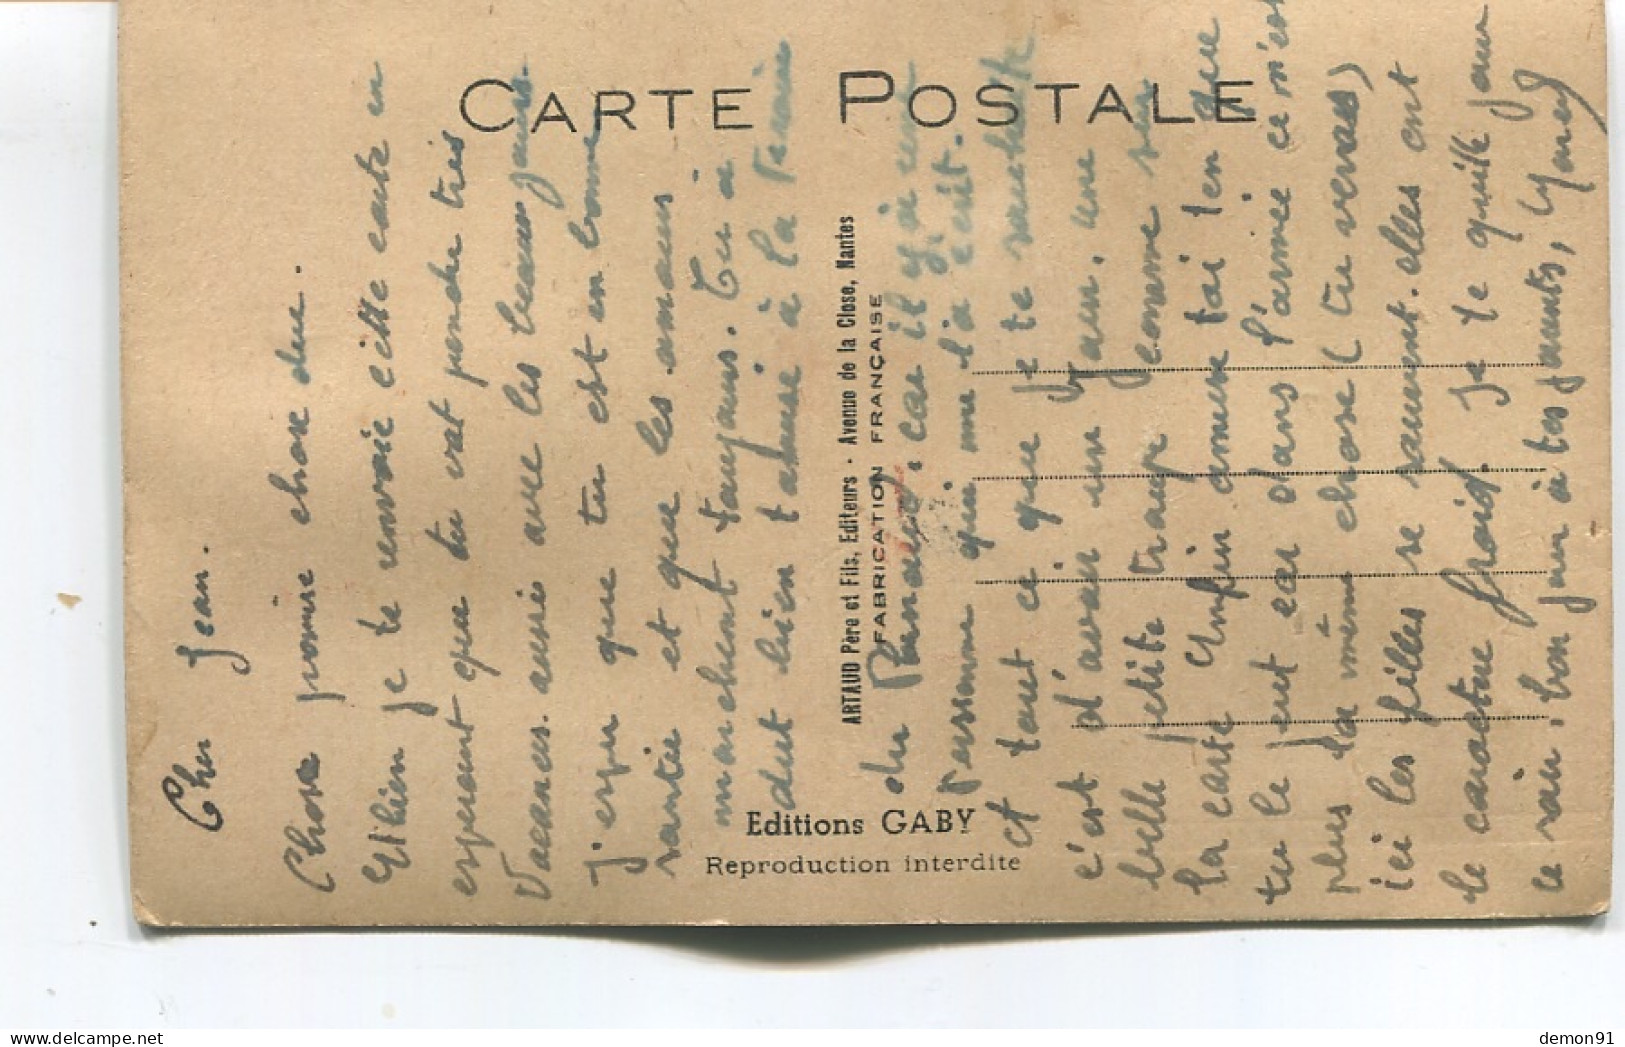 CARTE POSTALE
ARTAUD Père et Fils, Editeurs - Avenue de la Close, Nantes
FABRICATION FRANÇAISE
Editions GABY
Reproduction interdite
Cher Jean.
Chose promise chose due.
Eh bien je te renvoie cette carte en
esperant que tu vat pendre très
Vacances. ausie avec les beaux jours.
J'espu que tu est en bonne
santée et que les amours
marchent toujours. Tu a
dut bien t'amusé à la Prairie
du car il y a eut
personne qui me l'a écrit.
et tout ce que je te souhaite
c'est d'avoir un jour, une
belle petite troupe comme sur
la carte Enfin amuse tai ten que
tu le peut car dans l'armée ce n'est
plus la même chose (tu verras)
ici les filles se sauvent. elles ont
le caractère froid. Je te quitte pour
ce soir, bon jour à tes parents,
demon91